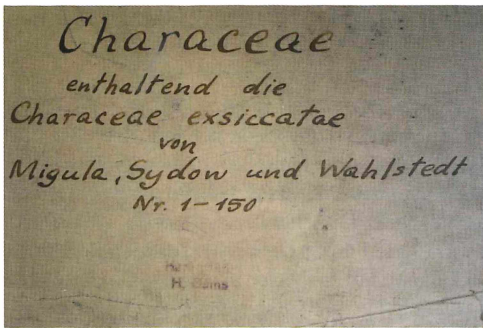 Characeae
enthaltend die
Characeae exsiccatae
von
Migula, Sydow und Wahlstedt
Nr. 1-150
H.